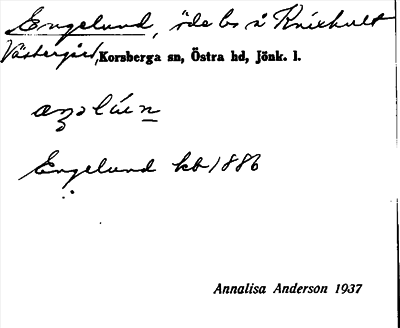 Engelund, öde ls å Knixhult
Västergård, Korsberga sn, Östra hd, Jönk. l.
Engelund kb 1886
Annalisa Anderson 1937